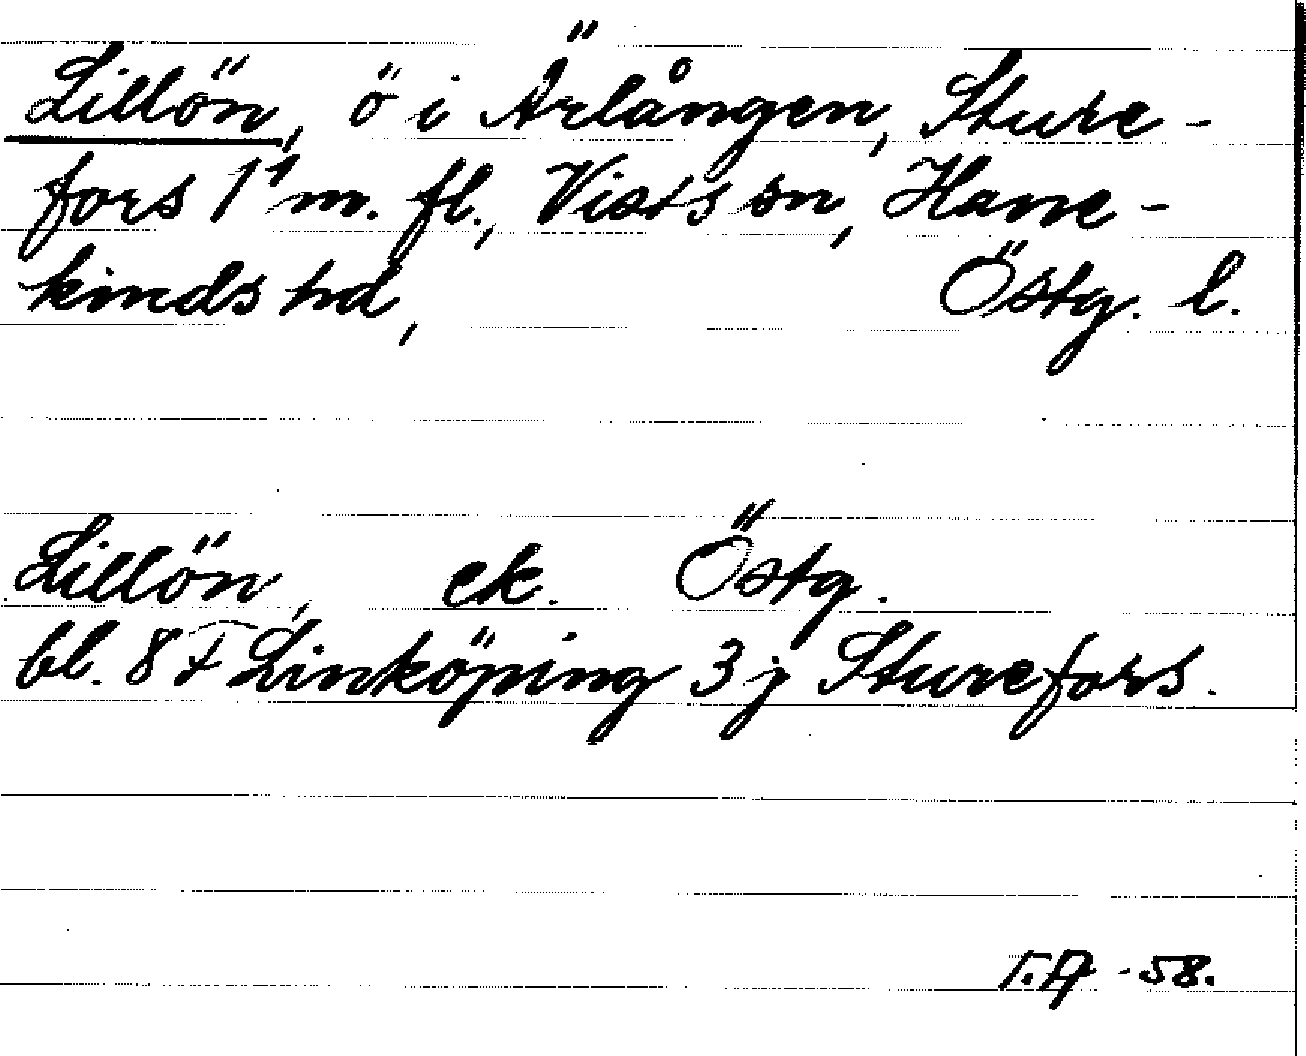 Lillön, ö i Ärlången, Sture-
fors 1¹ m. fl., Vists sn, Hane-
kinds hd, Östg. l.
Lillön, ek. Östg.
bl. 8 F Linköping 3 j Sturefors.
-58.